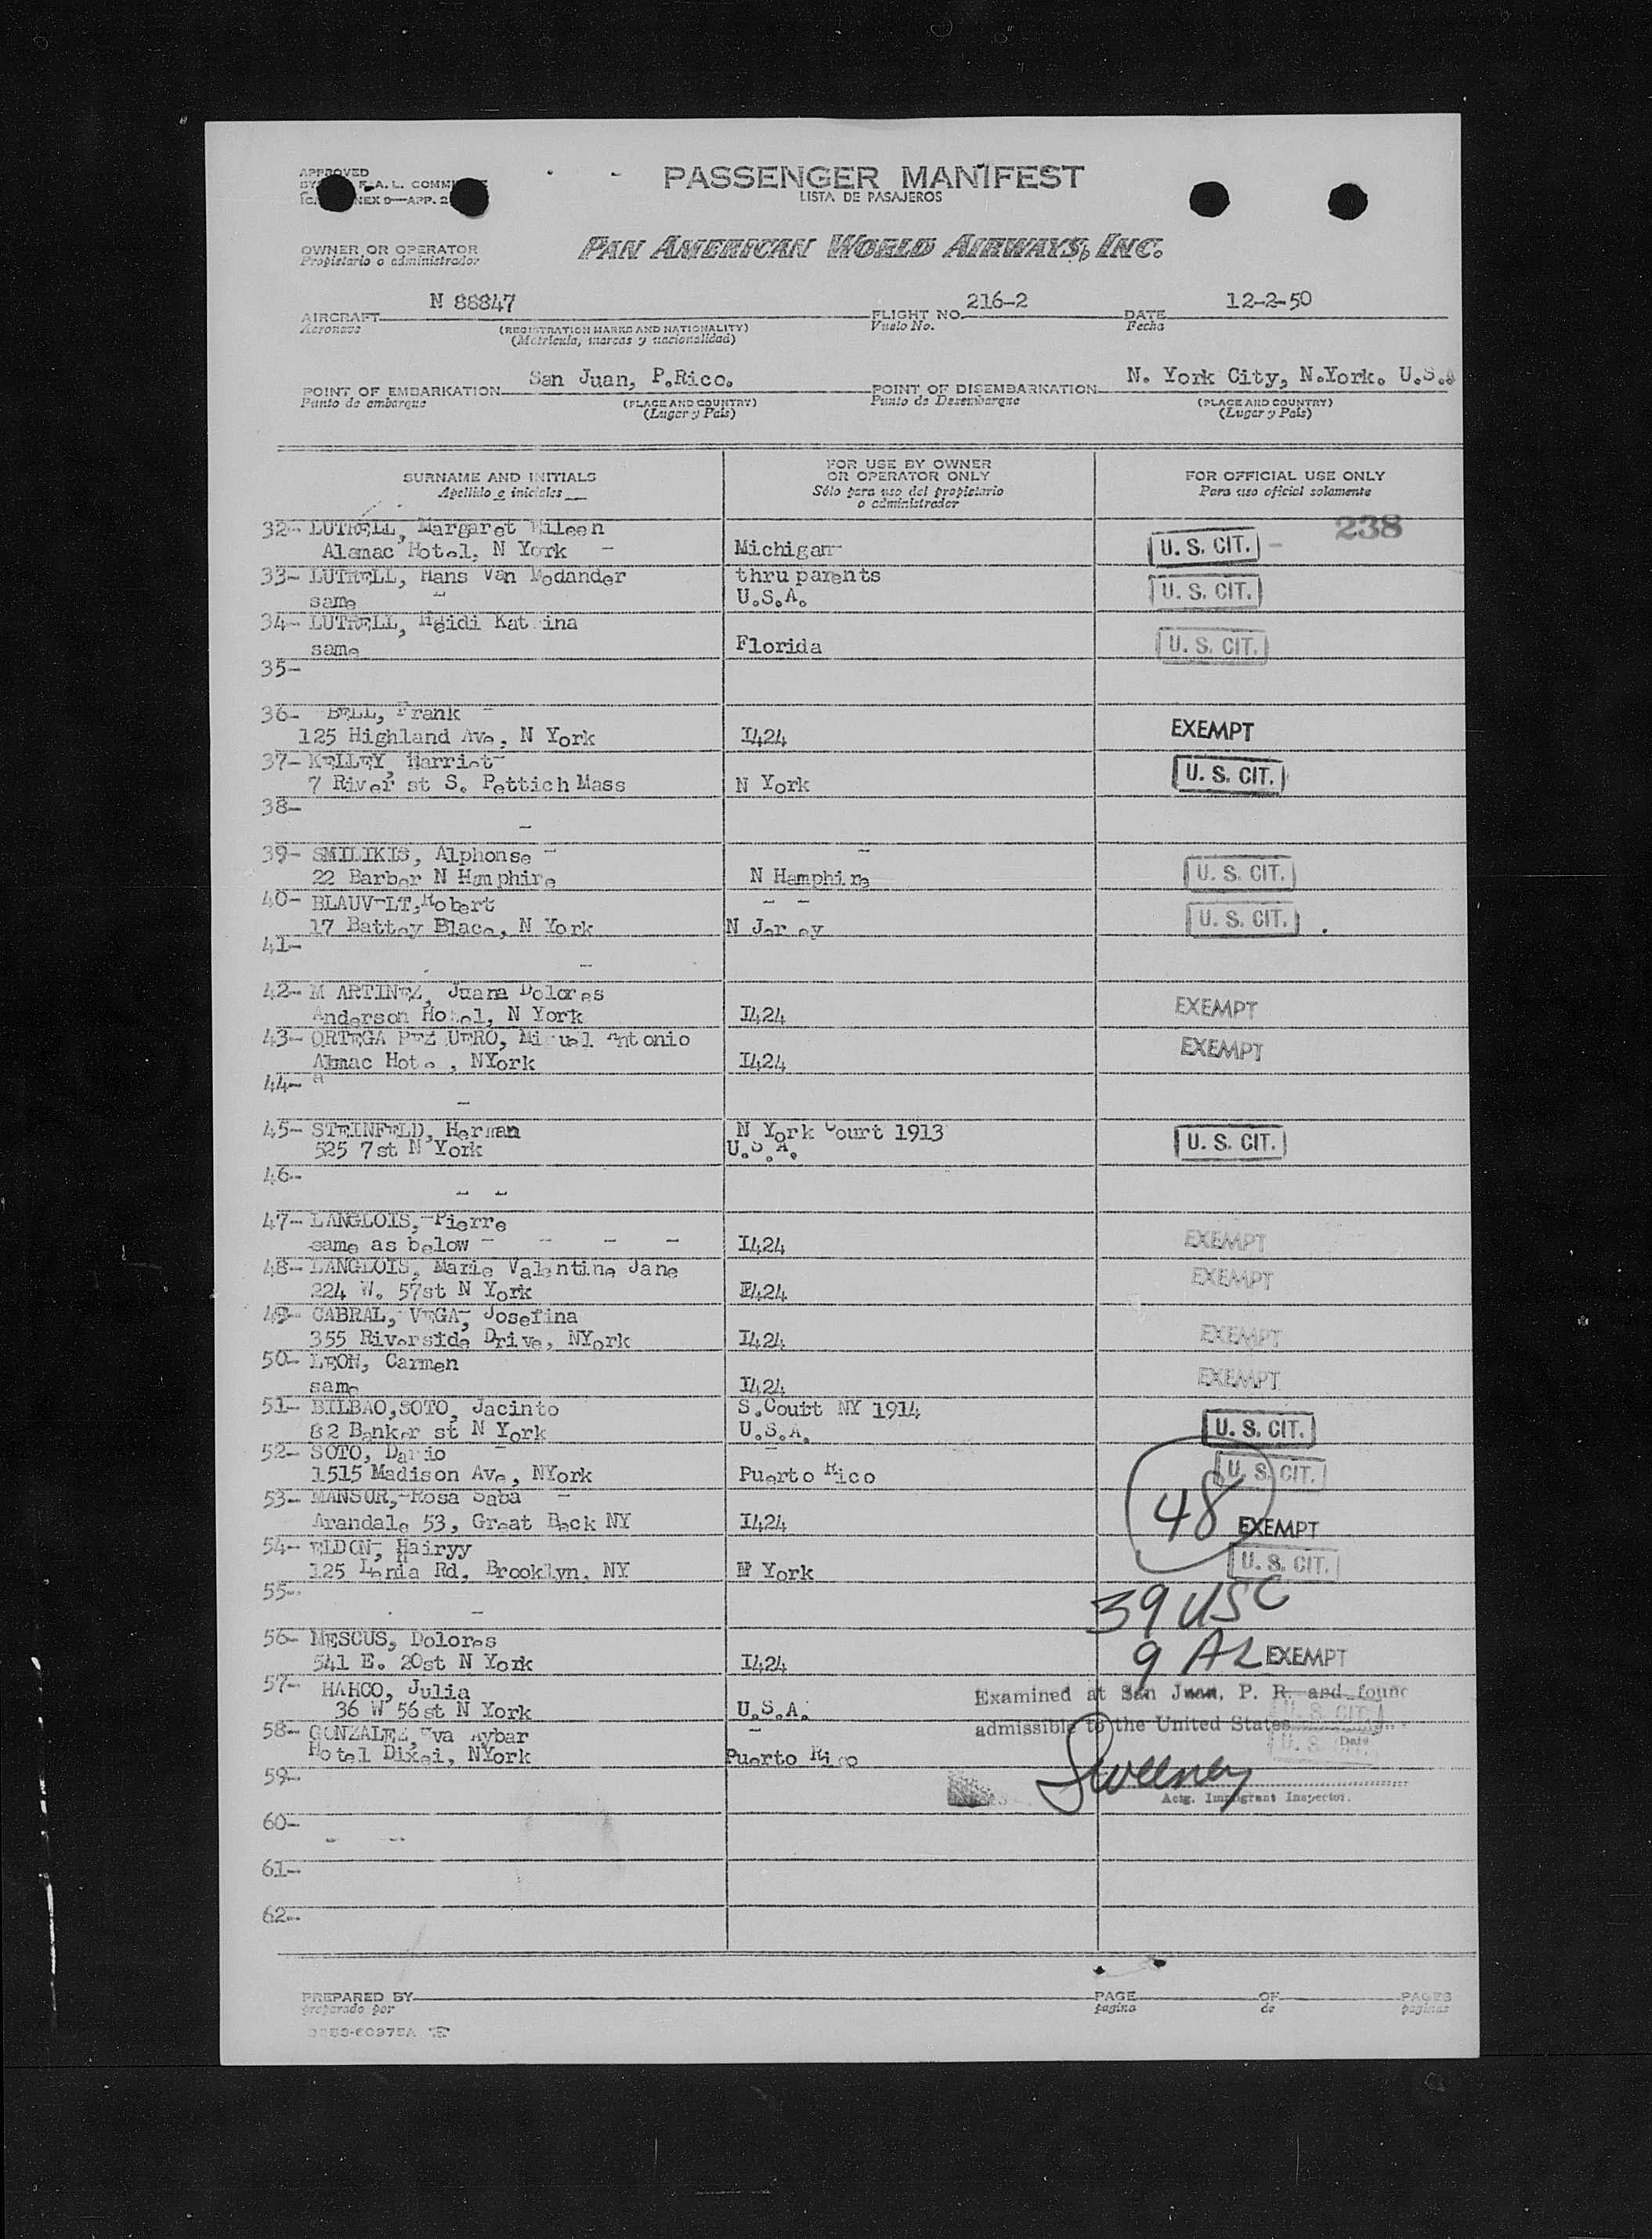 APPROVED
PASSENGER MANIFEST
LISTA DE PASAJEROS
OWNER OR OPERATOR
Propietario o administrador
PAN AMERICAN WORLD AIRWAYS, INC.
AIRCRAFT N 88847 FLIGHT NO. 216-2 DATE 12-2-50
Aeronave (REGISTRATION MARKS AND NATIONALITY) Vuelo No. Fecha
(Matrícula, marcas y nacionalidad)
POINT OF EMBARKATION San Juan, P.Rico. POINT OF DISEMBARKATION N. York City, N.York. U.S.A
Punto de embarque (PLACE AND COUNTRY) Punto de Desembarque (PLACE AND COUNTRY)
(Lugar y País) (Lugar y País)
SURNAME AND INITIALS FOR USE BY OWNER OR OPERATOR ONLY FOR OFFICIAL USE ONLY
Apellido e iniciales Sólo para uso del propietario o administrador Para uso oficial solamente
238
32- LUTRELL, Margaret Eileen
Alamac Hotel, N York - Michigan U. S. CIT.
33- LUTRELL, Hans Van thru parents
same U.S.A. U. S. CIT.
34- LUTRELL, Heidi Katrina
same Florida U. S. CIT.
35-
36- BELL, Frank
125 Highland Ave, N York I424 EXEMPT
37- KELLEY, Harriet
7 River st S. Pettich Mass N York U. S. CIT.
38-
39- SMILIKIS, Alphonse
22 Barber N Hamphire N Hamphire U. S. CIT.
40- BLAUVELT, Robert
17 Battey Blace, N York N Jersey U. S. CIT.
41-
42- M ARTINEZ, Juana Dolores
Anderson Hotel, N York I424 EXEMPT
43- ORTEGA Miguel Antonio
Almac Hote , NYork I424 EXEMPT
44-
45- STEINFELD, Herman N York Court 1913
525 7st N York U.S.A. U. S. CIT.
46-
47- LANGLOIS, Pierre
same as below I424 EXEMPT
48- LANGLOIS, Marie Valentine Jane
224 W. 57st N York I424 EXEMPT
49- CABRAL, VEGA, Josefina
355 Riverside Drive, NYork I424 EXEMPT
50- LEON, Carmen
same I424 EXEMPT
51- BILBAO,SOTO, Jacinto S.Court NY 1914
82 Banker st N York U.S.A. U. S. CIT.
52- SOTO, Dario
1515 Madison Ave, NYork Puerto Rico U. S. CIT.
53- MANSUR, Rosa Saba
Arandale 53, Great Beck NY I424 48 EXEMPT
54- ELDON, Hairyy
125 Rd, Brooklyn, NY N York U. S. CIT.
55-
39 USC
56- MESCUS, Dolores
541 E. 20st N York I424 9 AL EXEMPT
57- HAHCO, Julia
36 W 56st N York U.S.A. U. S. CIT.
Examined at San Juan, P. R. and found
admissible to the United States
58- GONZALEZ, Eva Aybar
Hotel Dixei, NYork Puerto Rico U. S. CIT.
Date
59-
Sweeney
Actg. Immigrant Inspector.
60-
61-
62-
PREPARED BY PAGE OF PAGES
preparado por pagina de paginas